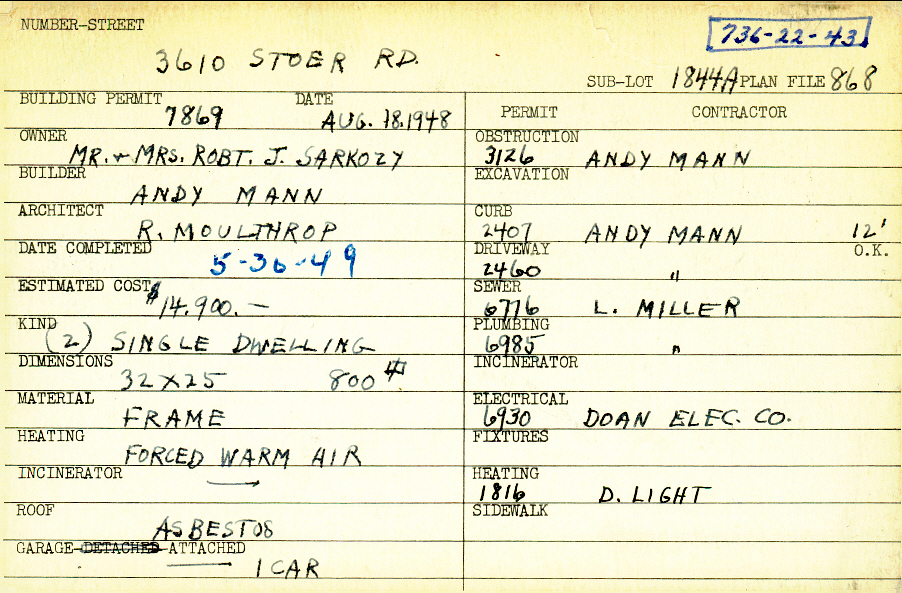 NUMBER-STREET
736-22-43
3610 STOER RD.
SUB-LOT 1844A PLAN FILE 868
BUILDING PERMIT DATE
7869 AUG. 18. 1948
OWNER
MR. + MRS. ROBT. J. SARKOZY
BUILDER
ANDY MANN
ARCHITECT
R. MOULTHROP
DATE COMPLETED
5-30-49
ESTIMATED COST
$14,900.—
KIND
(2) SINGLE DWELLING
DIMENSIONS
32 X 25 800 #
MATERIAL
FRAME
HEATING
FORCED WARM AIR
INCINERATOR
ROOF
ASBESTOS
GARAGE-DETACHED-ATTACHED
1 CAR
PERMIT CONTRACTOR
OBSTRUCTION
3126 ANDY MANN
EXCAVATION
CURB
2407 ANDY MANN 12'
DRIVEWAY O.K.
2460 "
SEWER
6776 L. MILLER
PLUMBING
6985 "
INCINERATOR
ELECTRICAL
6930 DOAN ELEC. CO.
FIXTURES
HEATING
1816 D. LIGHT
SIDEWALK